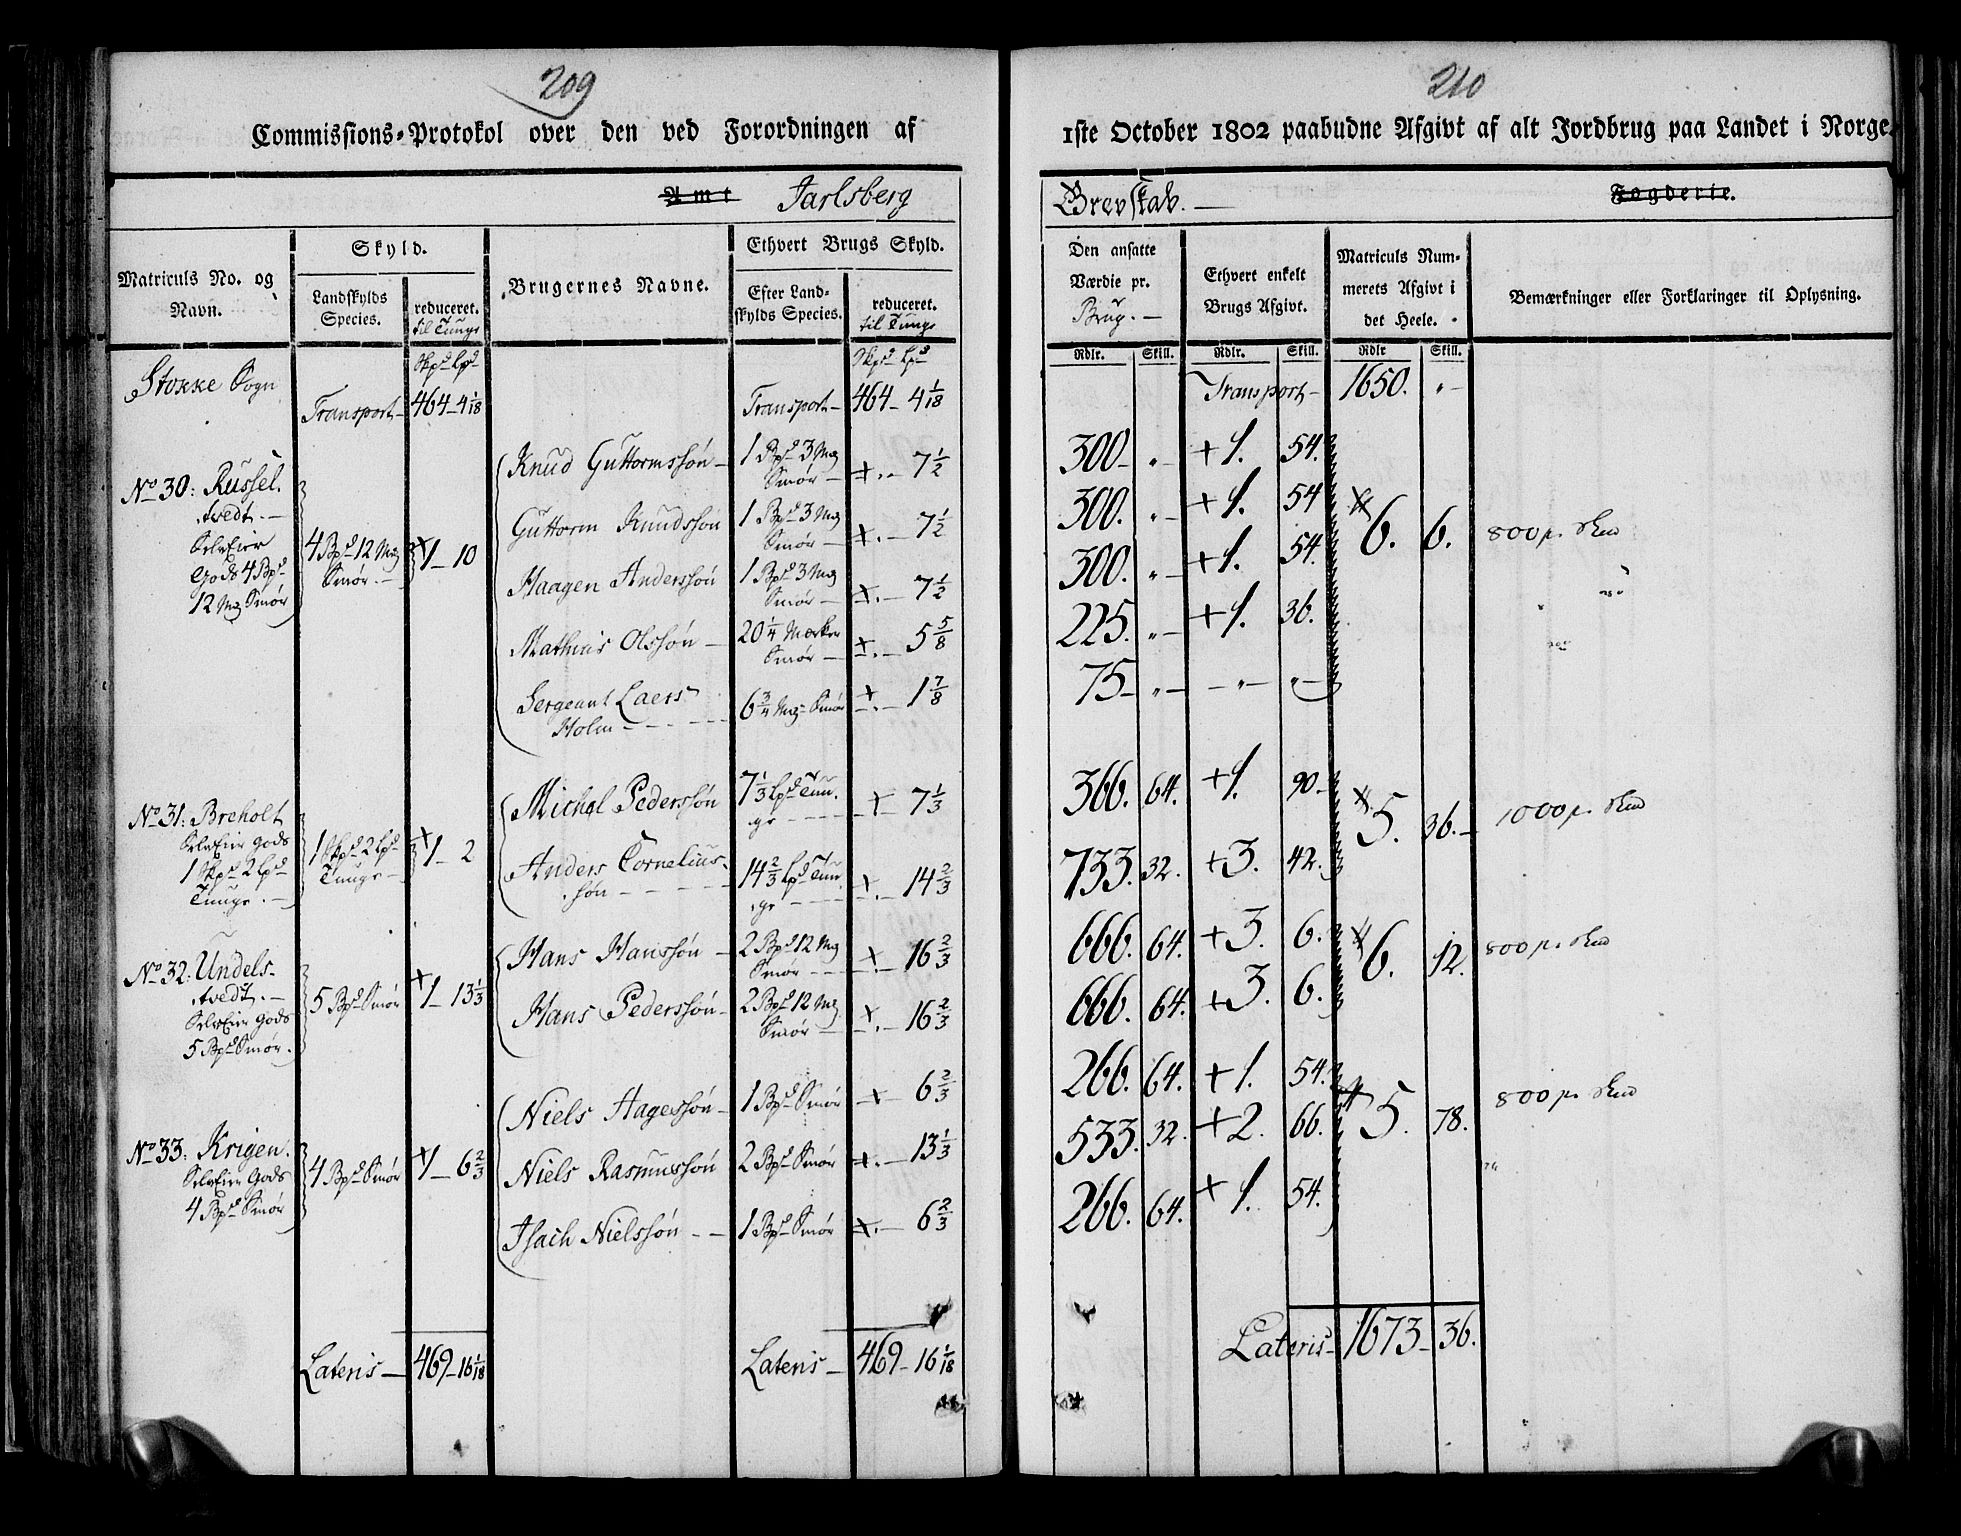 209
Commissions-Protokol over den ved Forordningen af
Amt Jarlsberg
Matriculs No. og Navn.
Skyld.
Landskylds Species.
reduceret. til Tunge
Brugernes Navne.
Ethvert Brugs Skyld.
Efter Landskylds Species.
reduceret. til Tunge
Skpd Lpd
Skpd Lpd
Stokke Sogn
Transport- 464-4 1/18
Transport- 464-4 1/18
No 30: Russel.
tvedt.-
SelvEier
Gods 4 Bpd
12 Mg Smør
4 Bpd 12 Mg Smør.-
1-10
Knud Guttormssøn- 1 Bpd 3 Mg Smør- 7 1/2
Guttorm Knudssøn 1 Bpd 3 Mg Smør- 7 1/2
Haagen Anderssøn 1 Bpd 3 Mg Smør- 7 1/2
Mathias Olssøn- 20 1/4 Marker Smør- 5 5/8
Sergeant Laers Holm- 6 3/4 Mg Smør 1 7/8
No 31: Breholt
SelvEier Gods
1 Skpd 2 Lpd
Tunge.-
1 Skpd 2 Lpd Tunge-
1-2
Michel Pederssøn 7 1/3 Lpd Tunge- 7 1/3
Anders Corneliussøn- 14 2/3 Lpd Tunge- 14 2/3
No 32: Undels-
tvedt.-
SelvEier Gods
5 Bpd Smør.
5 Bpd Smør
1-13 1/3
Hans Hanssøn- 2 Bpd 12 Mg Smør- 16 2/3
Hans Pederssøn- 2 Bpd 12 Mg Smør- 16 2/3
No 33: Krigen.
SelvEier Gods
4 Bpd Smør
4 Bpd Smør
1-6 2/3
Niels Hagessøn- 1 Bpd Smør 6 2/3
Niels Rasmussøn 2 Bpd Smør 13 1/3
Isach Nielssøn- 1 Bpd Smør 6 2/3
Lateris- 469-16 1/18
Lateris- 469-16 1/18
210
1ste October 1802 paabudne Afgivt af alt Jordbrug paa Landet i Norge.
Grevskab.- Fogderie.
Den ansatte Værdie pr. Brug.-
Ethvert enkelt Brugs Afgivt.
Matriculs Nummerets Afgivt i det Heele.
Bemærkninger eller Forklaringer til Oplysning.
Rdlr. Skill. Rdlr. Skill. Rdlr Skill.
Transport- 1650. "-
300- "- +1. 54.
300. "- +1. 54
6. 6. 800 p. Skd
300. "- +1. 54.
225. "- +1. 36.
75- "- -"- "-
366. 64. +1. 90-
5. 36.- 1000 p. Skd
733. 32. +3. 42.
666. 64. +3. 6.
6. 12. 800 p. Skd
666. 64. +3. 6.
266. 64. +1. 54.
533. 32. +2. 66.
5. 78. 800 p. Skd
266. 64. +1. 54.
Lateris- 1673-36.